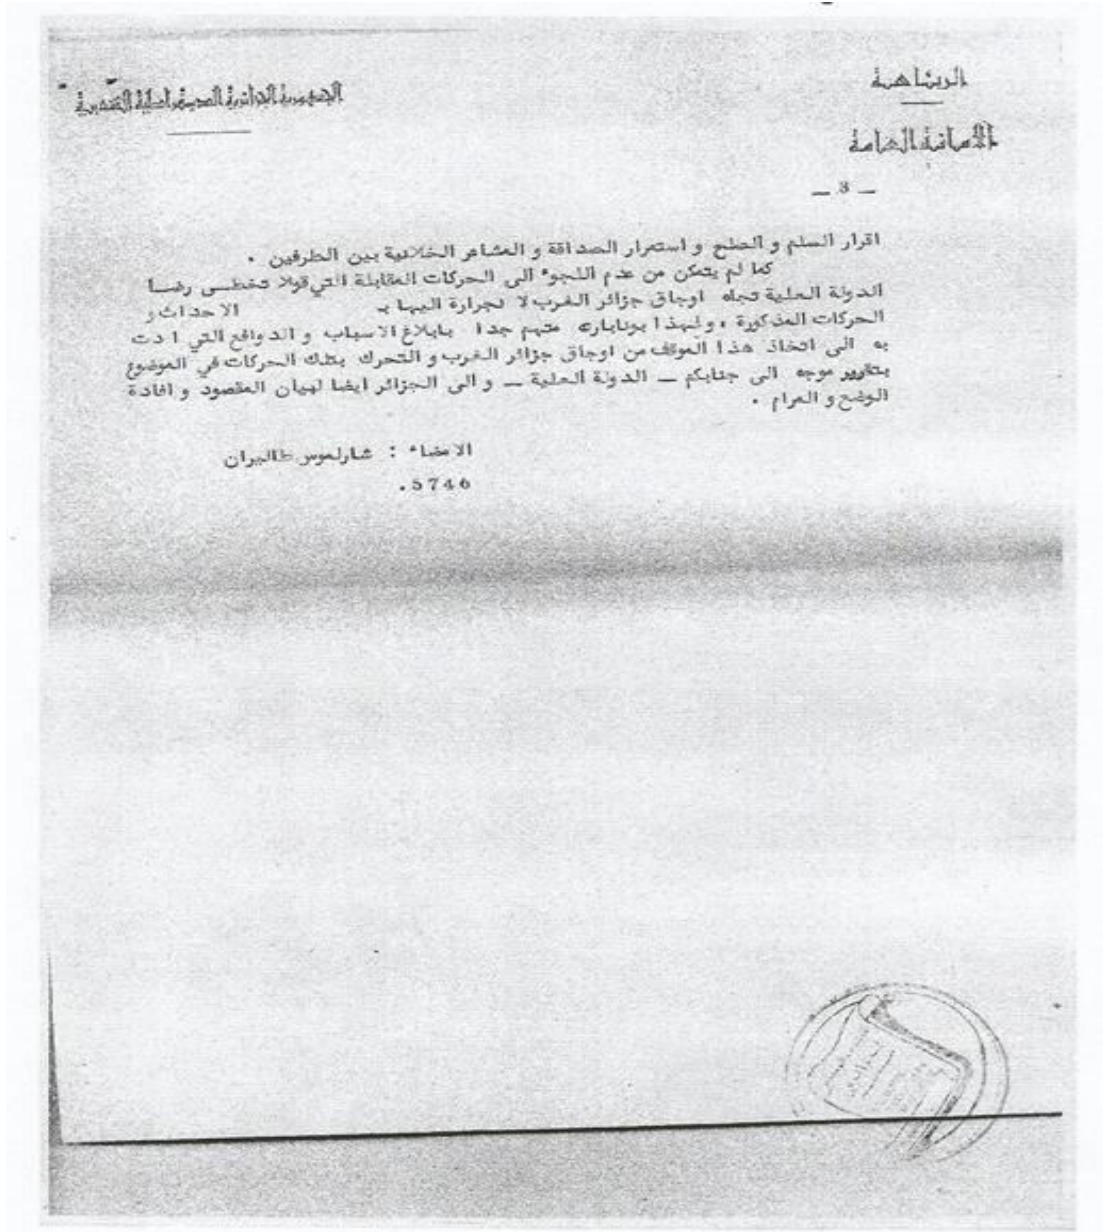 الجمهورية الجزائرية الديمقراطية الشعبية
الرئاسة
الأمانة العامة
— 3 —
اقرار السلم و الصلح و استمرار الصداقة و المشاعر الخلانية بين الطرفين .
كما لم يتمكن من عدم اللجوء الى الحركات المقابلة التي قولا تخطى رضا
الدولة العلية تجاه اوجاق جزائر الغرب لا لجرارة اليها بـ الاحداث و
الحركات المذكورة ، ولهذا بونابارت متهم جدا بابلاغ الاسباب و الدوافع التي ادت
به الى اتخاذ هذا الموقف من اوجاق جزائر الغرب و التحرك بتلك الحركات في الموضوع
بتقرير موجه الى جنابكم — الدولة العلية — و الى الجزائر ايضا لبيان المقصود و افادة
الوضع و المرام .
الامضاء : شارلموس طاليران
5746.